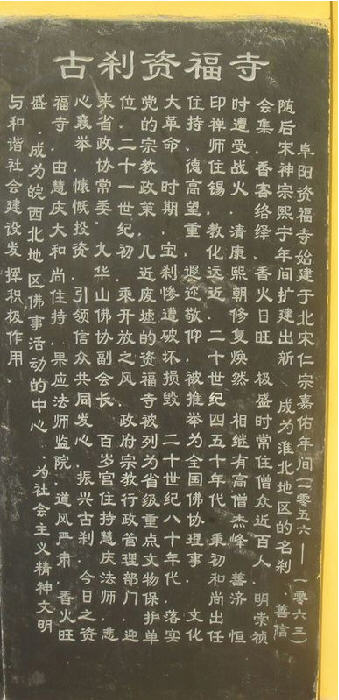 古刹资福寺
阜阳资福寺始建于北宋仁宗嘉佑年间(一零五六——一零六三)
随后宋神宗熙宁年间扩建出新.成为淮北地区的名刹.善信
会集.香客络绎.香火日旺.极盛时常住僧众近百人.明崇祯
时遭受战火.清康熙朝修复焕然.相继有高僧杰峰.善济.恒
印禅师住锡.教化远近.二十世纪四五十年代.秉初和尚出任
住持.德高望重.遐迩敬仰.被推举为全国佛协理事.文化
大革命.时期.宝刹惨遭破坏损毁.二十世纪八十年代.落实
党的宗教政策.几近废墟的资福寺被列为省级重点文物保护单
位.二十一世纪初.乘开放之风.政府宗教行政管理部门.迎
来省政协常委.九华山佛协副会长.百岁宫住持慧庆法师.悲
心襄举.慷慨投资.引领信众共同发心.振兴古刹.今日之资
福寺.由慧庆大和尚住持.果应法师监院.道风严肃.香火旺
盛.成为皖西北地区佛事活动的中心.为社会主义精神文明
与和谐社会建设发挥积极作用.